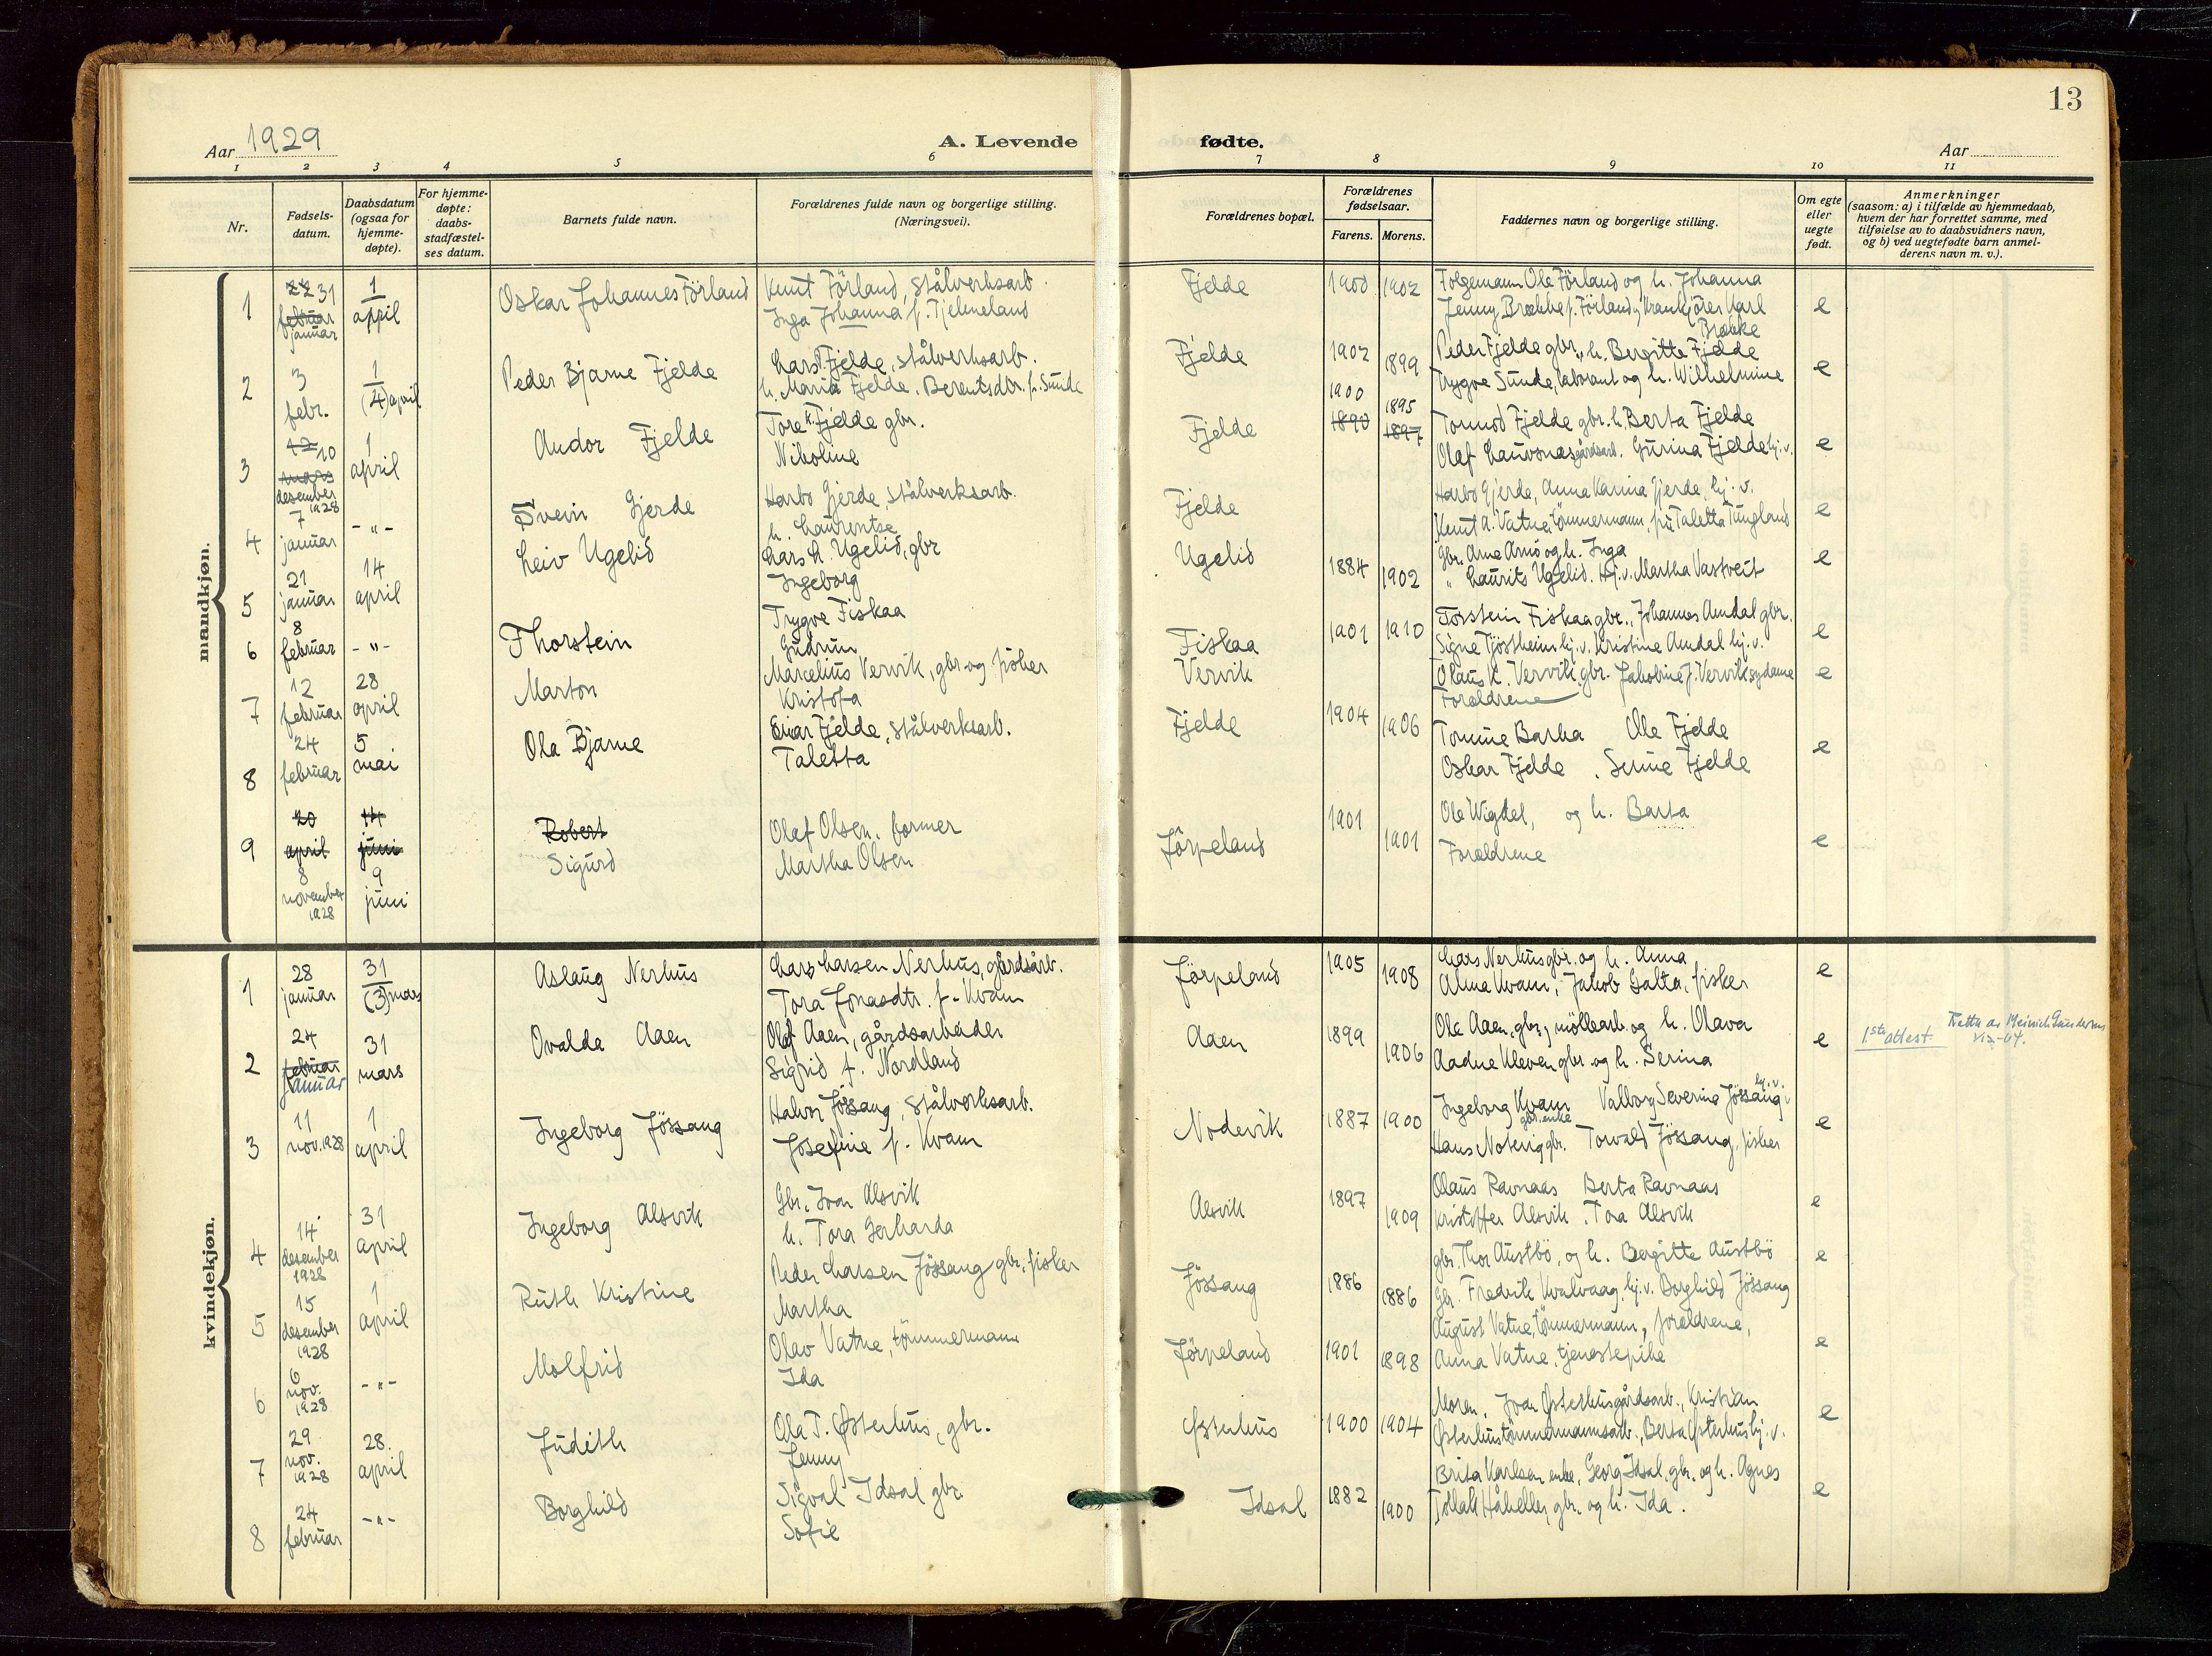 13
Aar 1929
A. Levende fødte.
Aar
1 2 3 4 5 6 7 8 9 10 11
Nr.
Fødsels-
datum.
Daabsdatum
(ogsaa for
hjemme-
døpte).
For hjemme-
døpte:
daabs-
stadfæstel-
ses datum.
Barnets fulde navn.
Forældrenes fulde navn og borgerlige stilling.
(Næringsvei).
Forældrenes bopæl.
Forældrenes
fødselsaar.
Farens. Morens.
Faddernes navn og borgerlige stilling.
Om egte
eller
uegte
født.
Anmerkninger
(saasom: a) i tilfælde av hjemmedaab,
hvem der har forrettet samme, med
tilføielse av to daabsvidners navn,
og b) ved uegtefødte barn anmel-
derens navn m. v.).
mandkjøn.
1
31
februar
januar
1
april
Oskar Johannes Förland
Knut Förland, stålverksarb.
Inga Johanna f. Tjelmeland
Fjelde
1900 1902
Ole Förland og h. Johanna
Jenny Brække f. Förland, Krankjörer Karl
Brække
e
2
3
febr.
1
(4) april
Peder Bjarne Fjelde
Lars Fjelde, stålverksarb.
h. Maria Fjelde, Berentsdtr. f. Sunde
Fjelde
1902 1899
Peder Fjelde gbr., h. Bergitte Fjelde
Trygve Sunde, laborant og h. Wilhelmine
e
3
12 10
mars
desember
1928
1
april
Andor Fjelde
Tore K. Fjelde gbr.
Nikoline
Fjelde
1900 1895
1890 1897
Tormod Fjelde gbr. h. Berta Fjelde
Olaf Lauvsnes gårdsarb. Gurina Fjelde hj. v.
e
4
7
januar
- " -
Svein Gjerde
Harbo Gjerde, stålverksarb.
h. Laurentse
Fjelde
Harbo Gjerde, Anna Karina Gjerde, hj. v.
Knut A. Vatne, tömmermann, frk Taletta Tungland
e
5
21
januar
14
april
Leiv Ugelid
Lars L. Ugelid, gbr
Ingeborg
Ugelid
1884 1902
Gbr. Arne Arnö og h. Inga
" Laurits Ugelid. Hj. v. Martha Vastveit
e
6
8
februar
- " -
Thorstein
Trygve Fiskaa
Gudrun
Fiskaa
1901 1910
Torstein Fiskaa gbr., Johannes Amdal gbr.
Signe Tjöstheim hj. v. Kristine Amdal hj. v.
e
7
12
februar
28
april
Marton
Marcelius Vervik, gbr og fisker
Kristofa
Vervik
Olaus K. Vervik, gbr. Jakobine J. Vervik sydame
Forældrene
e
8
24
februar
5
mai
Ola Bjarne
Einar Fjelde, stålverksarb.
Taletta
Fjelde
1904 1906
Tomine Barka Ole Fjelde
Oskar Fjelde, Serine Fjelde
e
9
20
april
8
november
1928
14
juni
9
juni
Robert
Sigurd
Olaf Olsen, former
Martha Olsen
Jörpeland
1901 1901
Ole Wigdel, og h. Barta
Forældrene
e
kvindekjøn.
1
28
januar
31
(3) mars
Aslaug Nerhus
Lars Larsen Nerhus, gårdsarb.
Tora Jonasdtr. f. Kvam
Jörpeland
1905 1908
Lars Nerhus gbr. og h. Anna
Alma Kvam, Jakob Galta, fisker
e
2
24
februar
januar
31
mars
Ovalda Aaen
Olaf Aaen, gårdsarbeider
Sigrid f. Nordland
Aaen
1899 1906
Ole Aaen, gbr., möllearb. og h. Olava
Aadne Kleven gbr. og h. Serina
e
1ste attest.
3
11
nov. 1928
1
april
Ingeborg Jössang
Halvor Jössang, stålverksarb.
Josefine f. Kvam
Nodevik
1887 1900
Ingeborg Kvam Valborg Severine Jössang hj. v.
gbr. enke
Hans Notevig gbr. Torvald Jössang, fisker
e
4
14
desember
1928
31
april
Ingeborg Alsvik
Gbr. Ivar Alsvik
h. Tora Gerharda
Alsvik
1897 1909
Olaus Ravnaas Berta Ravnaas
Kristoffer Alsvik. Tora Alsvik
e
5
15
desember
1928
1
april
Ruth Kristine
Peder Larsen Jössang gbr. fisker
Martha
Jössang
1886 1886
gbr. Thor Austbö, og h. Bergitte Austbö
Gbr. Fredrik Kvalvaag, hj. v. Borghild Jössang
e
6
6
nov.
1928
- " -
Molfrid
Olav Vatne, tömmermann
Ida
Jörpeland
1901 1898
August Vatne, tömmermann, forældrene,
Anna Vatne, tjenestepike
e
7
29
nov.
1928
28.
april
Judith
Ola T. Østerhus, gbr.
Jenny
Østerhus
1900 1904
Moren, Ivar Østerhus gårdsarb., Kristian
Østerhus tömmermannsarb., Berta Østerhus hj. v.
e
8
24
februar
- " -
Borghild
Sigval Idsal gbr.
Sofie
Idsal
1882 1900
Brita Karlsen enke, Georg Idsal, gbr. og h. Agnes
Tollak Håheller, gbr. og h. Ida.
e